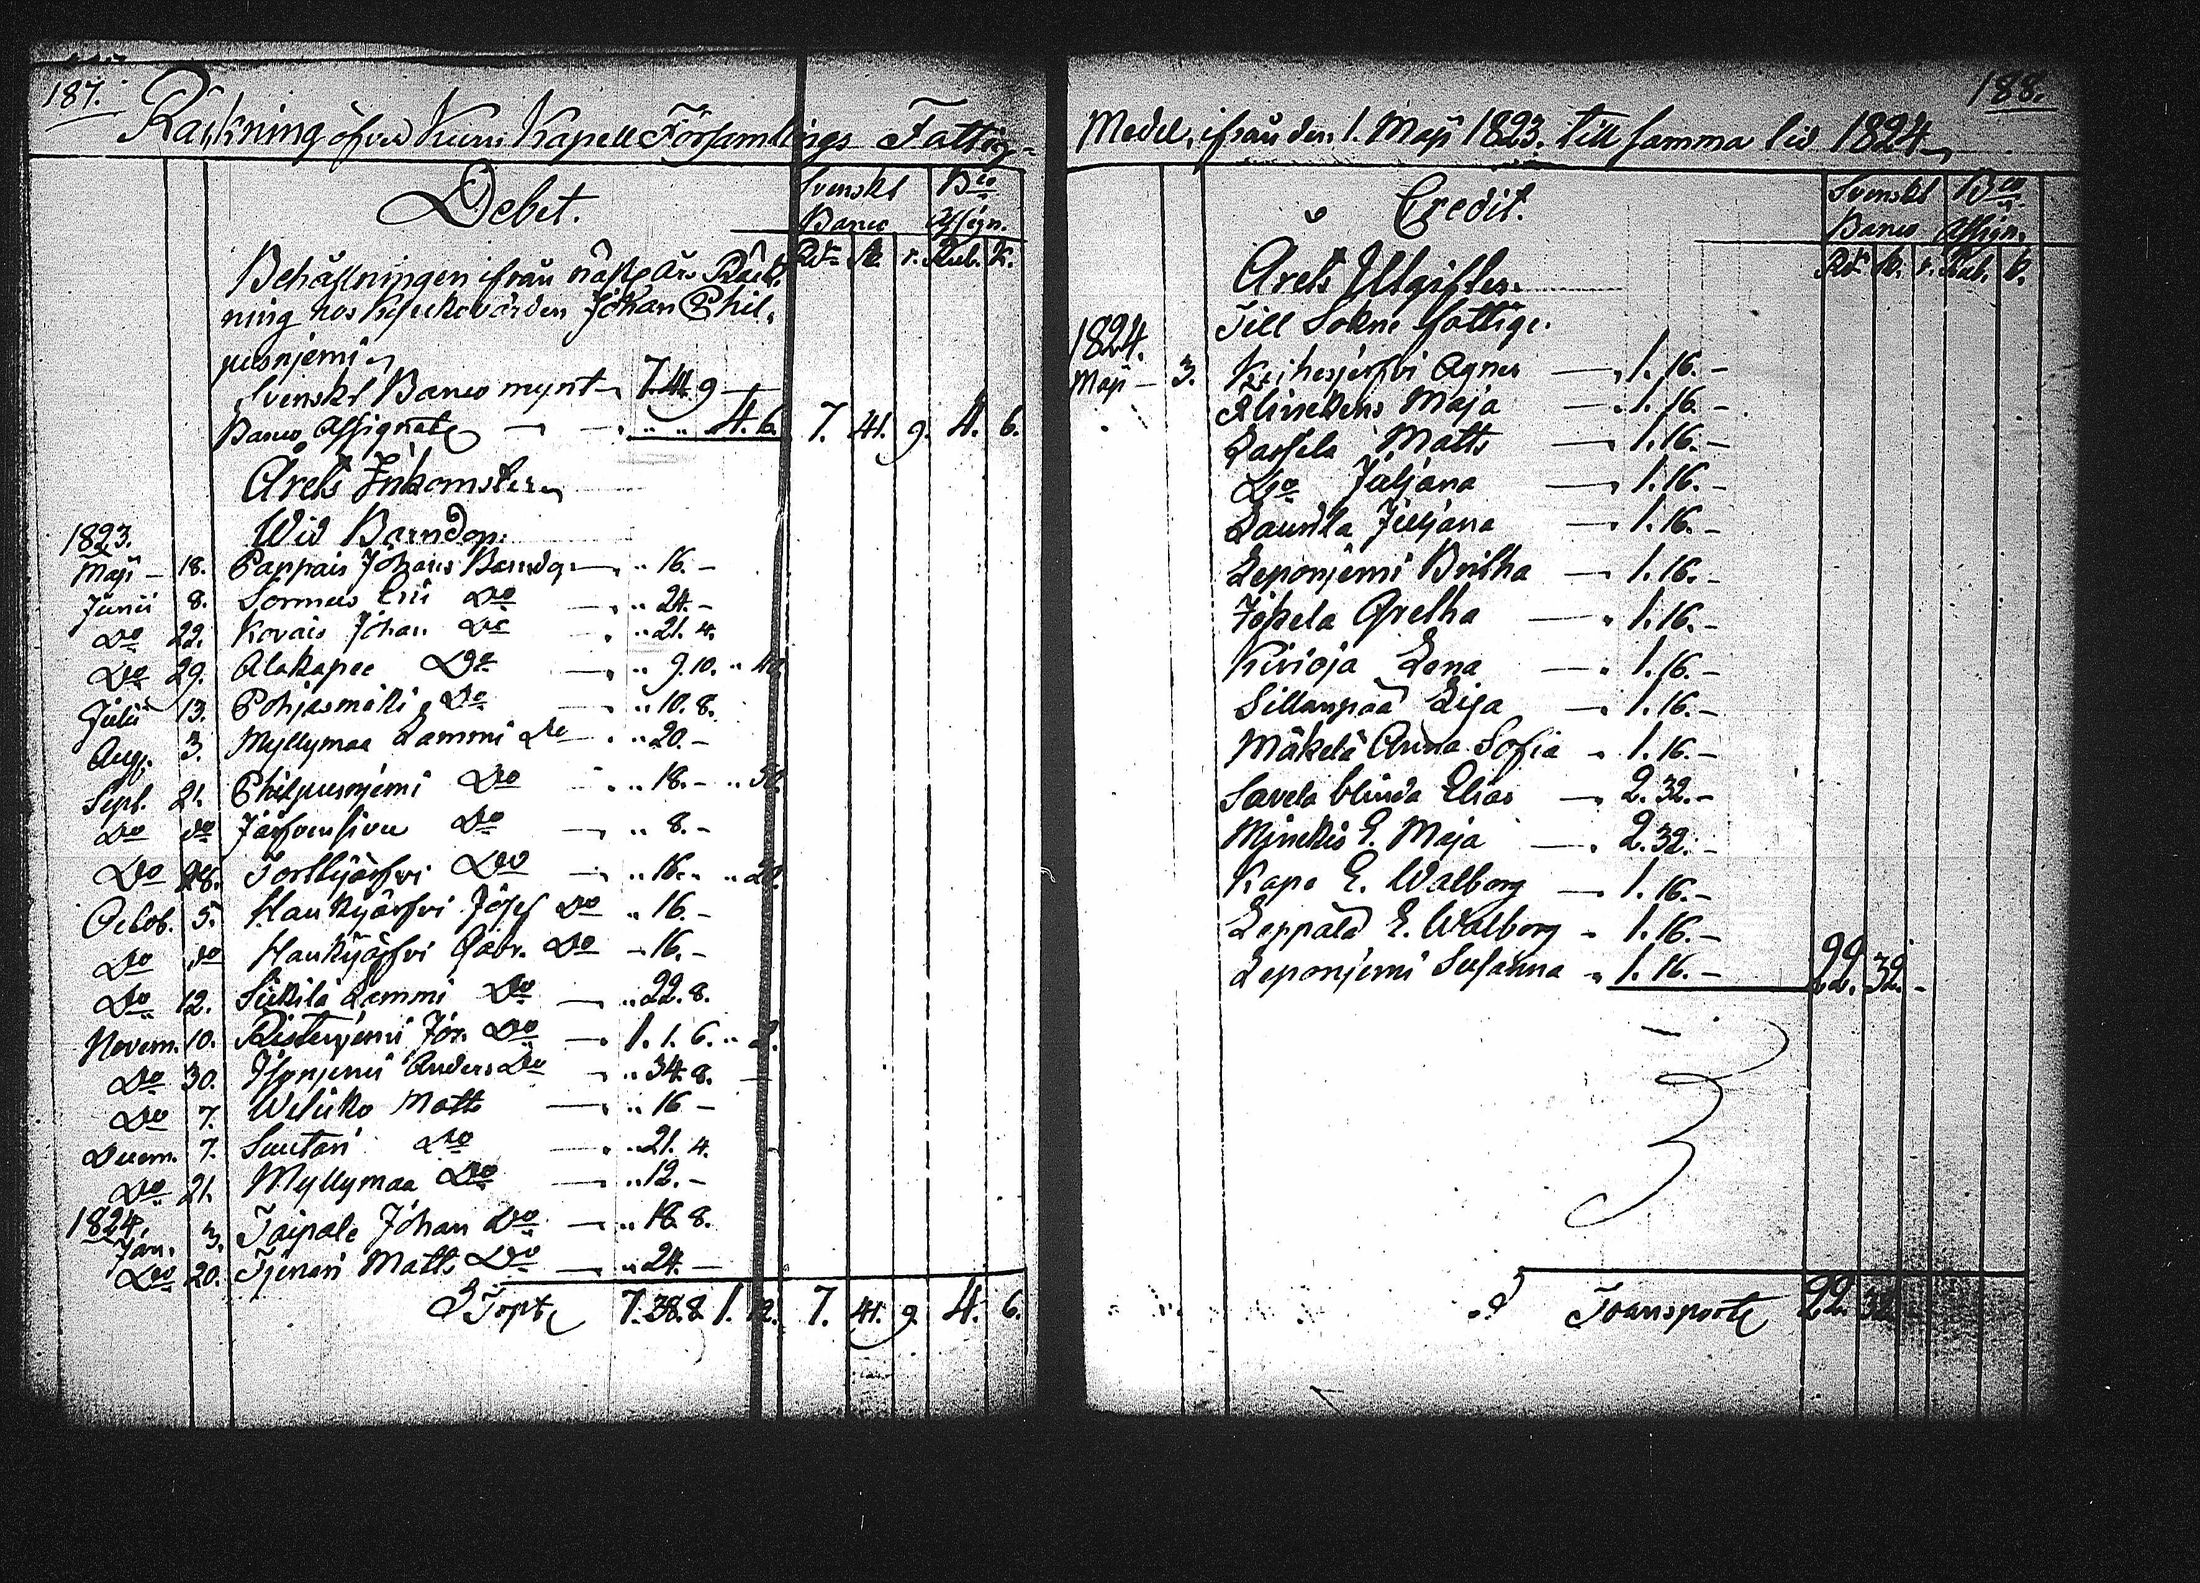 187.
Räkning öfver Kiuru Kapell Församlings Fattig-
Debet.
Svenskt Bco
Banco Assign.
Rdr sk. r. Rub. k.
Behållningen ifrån näste års Räk-
ning hos Kyrkovärden Johan Phil-
pusnjemi
Svenskt Banco mynt 7. 41. 9
Banco Assignat 4. 6. 7. 41. 9. 4. 6.
Årets Inkomster
1823. Wid Barndop.
Maji 18. Pappais Johans Barndop " 16. -
Junii 8. Sormus Do " 24. -
Do 22. Kovais Johan Do " 21. 4.
Do 29. Alakapee Do " 9. 10. " 40
Julii 13. Pohjasmäki Do " 10. 8.
Aug. 3. Myllymaa Lammi Do " 20. -
Sept. 21. Philpusnjemi Do " 18. - "
Do do Järfvensivu Do " 8. -
Do 28. Do " 16. "
Octob. 5. Haukijärfvi Josef Do " 16. -
Do do Haukijärfvi Gabr. Do 16. -
Do 12. Lammi Do " 22. 8.
Novem. 10. Do 1. 1. 6. "
Do 30. Anders Do " 34. 8.
Do 7. Matts " 16 -
Decem. 7. Suutari Do " 21. 4.
Do 21. Myllymaa Do " 12. -
1824.
Jan. 3. Taipale Johan Do " 18. 8.
Do 20. Matts Do " 24. -
Tspt 7. 38. 8. 1. 12. 7. 41. 9. 4. 6.
188.
Medel, ifrån den 1. Maji 1823. till samma tid 1824
Credit.
Svenskt Bco
Banco Assign.
Rdr sk. r. Rub. k.
Årets Utgifter.
Till Sokne fattige.
1824.
Maji 3. Agnes 1. 16. -
Maja 1. 16. -
Lassila Matts 1. 16. -
Do Juljana 1. 16. -
Laurila Juljana 1. 16. -
Leponjemi Britha 1. 16. -
Jokela Gretha 1. 16. -
Kivioja Lena 1. 16. -
Sillanpää Lisa 1. 16. -
Mäkelä Anna Sofia 1. 16. -
Savela blinda Elias 2. 32. -
E. Maja 2. 32. -
E. Walborg 1. 16. -
Leppälä E. Walborg 1. 16. -
Leponjemi Susanna 1. 16. - 22. 32. -
Transport 22. 32